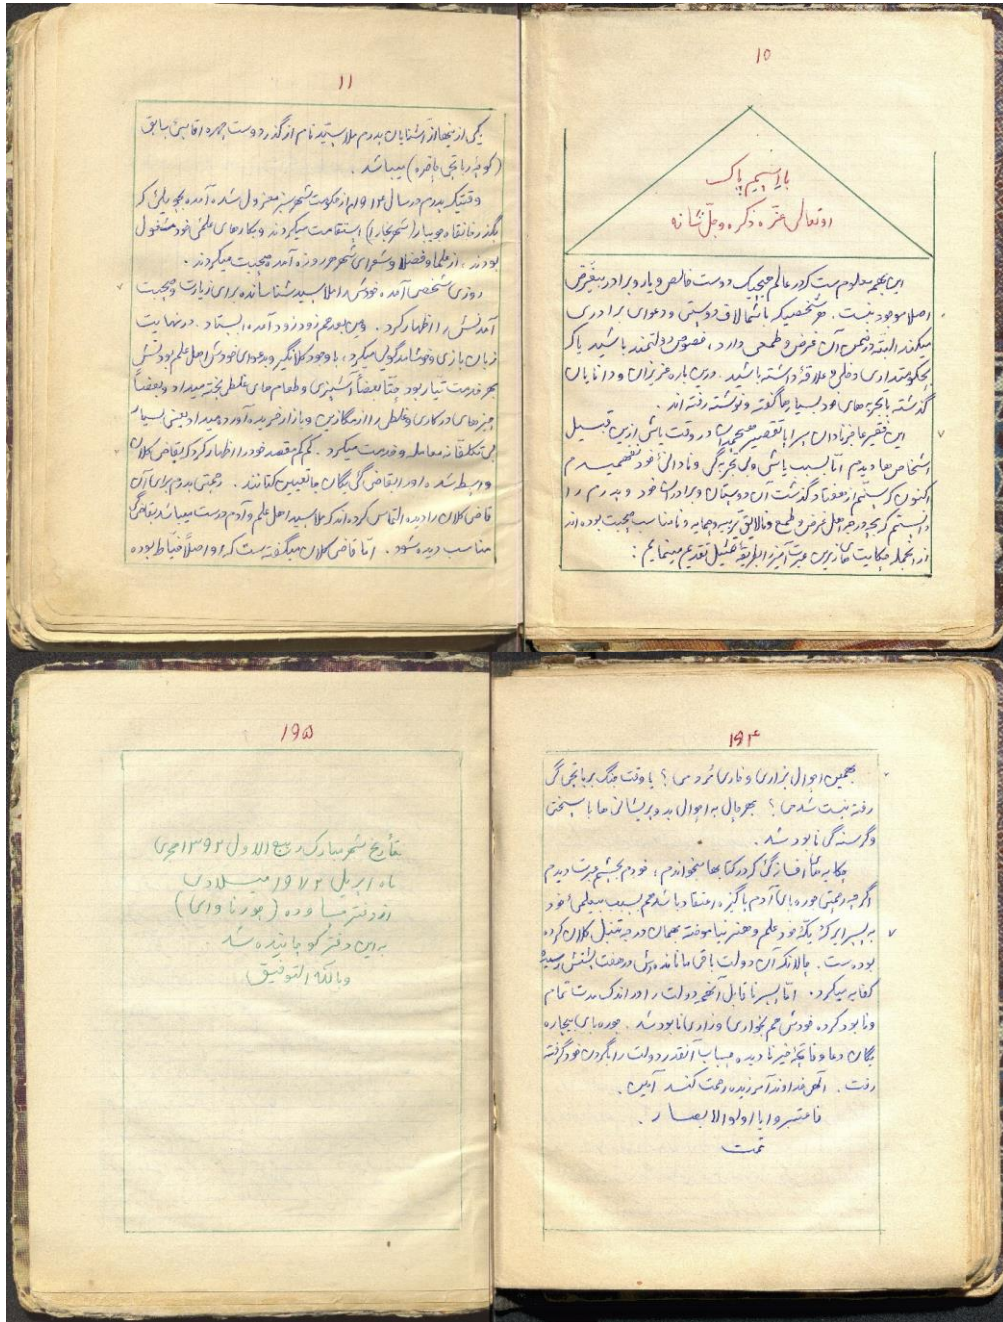 ۱۰
باسم پاک
او تعالی عزّه ذکره و جلّ شانه
این بهمه معلوم ست که در عالم هیچیک دوست خالص و یار و برادر بیغرض
اصلا موجود نیست. هر شخصیکه با شما لاف دوستی و دعوای برادری
میکند البته در ضمن آن غرض و طمعی دارد، خصوص دولتمند باشید یا که
بحکومتداری دخلی و علاقهٔ داشته باشید. درین باره عزیزان و دانایان
گذشته با تجربه های خود بسیار ها گفته و نوشته رفته اند.
این فقیر عاجز نادان سراپا تقصیر هیچمدان در وقت یاش ازین قبیل
اشخاص ها دیدم امّا بسبب یاش و بی تجربه گی و نادانیٔ خود نفهمیدم
اکنون که سنّم از هفتاد گذشت آن دوستان و برادران خود و پدرم را
دانستم که بچه درجه اهل غرض و طمع و نالایق تربیه و حمایه و نامناسب صحبت بوده اند
از انجمله حکایت های زیرین عبرت آمیز را بطریق تمثیل تقدیم مینمایم:
۱۱
یکی از اینها از آشنایان پدرم ملا سیّد نام از گذر دوست چهره آقاسیٔ سابق
(کوچه رباتچی ) میباشد.
وقتیکه پدرم در سال ۱۹۱۲ از حکومت شهرسبز معزول شده آمده بحویلیٔ که
بگذر خانقاه جویبار (شهر بخارا) استقامت میکردند و بکارهای علمیٔ خود مشغول
بودند، از علما و فضلا و شعرای شهر هر روزه آمده صحبت میکردند.
روزی شخصی آمده خودش را ملا سید شناسانده برای زیارت و صحبت
آمدنش را اظهار کرد. و من بعد هر زود زود آمده ایستاد. در نهایت
زبان بازی و خوشامدگویی میکرد، با وجود کلانگیر و بدعوای خودش اهل علم بودنش
بهر خدمت تیار بود حتّا بعضاً آشپزی و طعام های غلطی پخته میداد و بعضاً
چیزهای درکاری و غلطی را از مگازین و بازار خریده آورده میداد یعنی بسیار
بی تکلفانه معامله و خدمت میکرد. کم کم مقصد خود را اظهار کرد که بقاضی کلان
واسطه شده او را بقاضی گی یگان جا تعیین کنانند. رحمتی پدرم برای آن
قاضی کلان را دیده التماس کرده اند که ملا سید اهل علم و آدم درست میباشد بقاضی گی
مناسب دیده شود. امّا قاضی کلان میگفته ست که او اصلاً خیّاط بوده
۱۹۴
بهمین احوال بزاری و خاری مُرد می؟ یا وقت جنگ بربادچی گی
رفته نیست شد می؟ بهر حال به احوال بد و پریشانی ها با سختی
و گرسنه گی نابود شد.
حکایه هایٔ افسانه گی که در کتابها میخواندم، خودم بچشم عبرت دیدم
اگر چه رحمتی جوره بای آدم پاگیزه اعتقاد باشد هم بسبب بیعلمیٔ خود
به پسر ایرکه یکّهٔ خود علم و هنر نیاموخته بهمان درجه تنبل کلان کرده
بوده ست. حالانکه آن دولت باقی مانده یش در هفت پشتش رسیده
کفایه میکرد. امّا پسر ناقابل آنهمه دولت را در اندک مدت تمام
و نابود کرده خودش هم بخواری و زاری نابود شد. جوره بای بیچاره
یگان دعا و فاتحهٔ خیر نادیده حساب آنقدر دولت را بگردن خود گرفته
رفت. الهی خداوند آمرزیده رحمت کند آمین.
فاعتبروا یا اولوالابصار.
تمت
۱۹۵
بتأریخ شهر مبارک ربیع الاول ۱۳۹۲ هجری
ماه اپریل ۱۹۷۲ میلادی
از دفتر مساوده (چورناوای)
به این دفتر کوچانیده شد
و بالله التوفیق